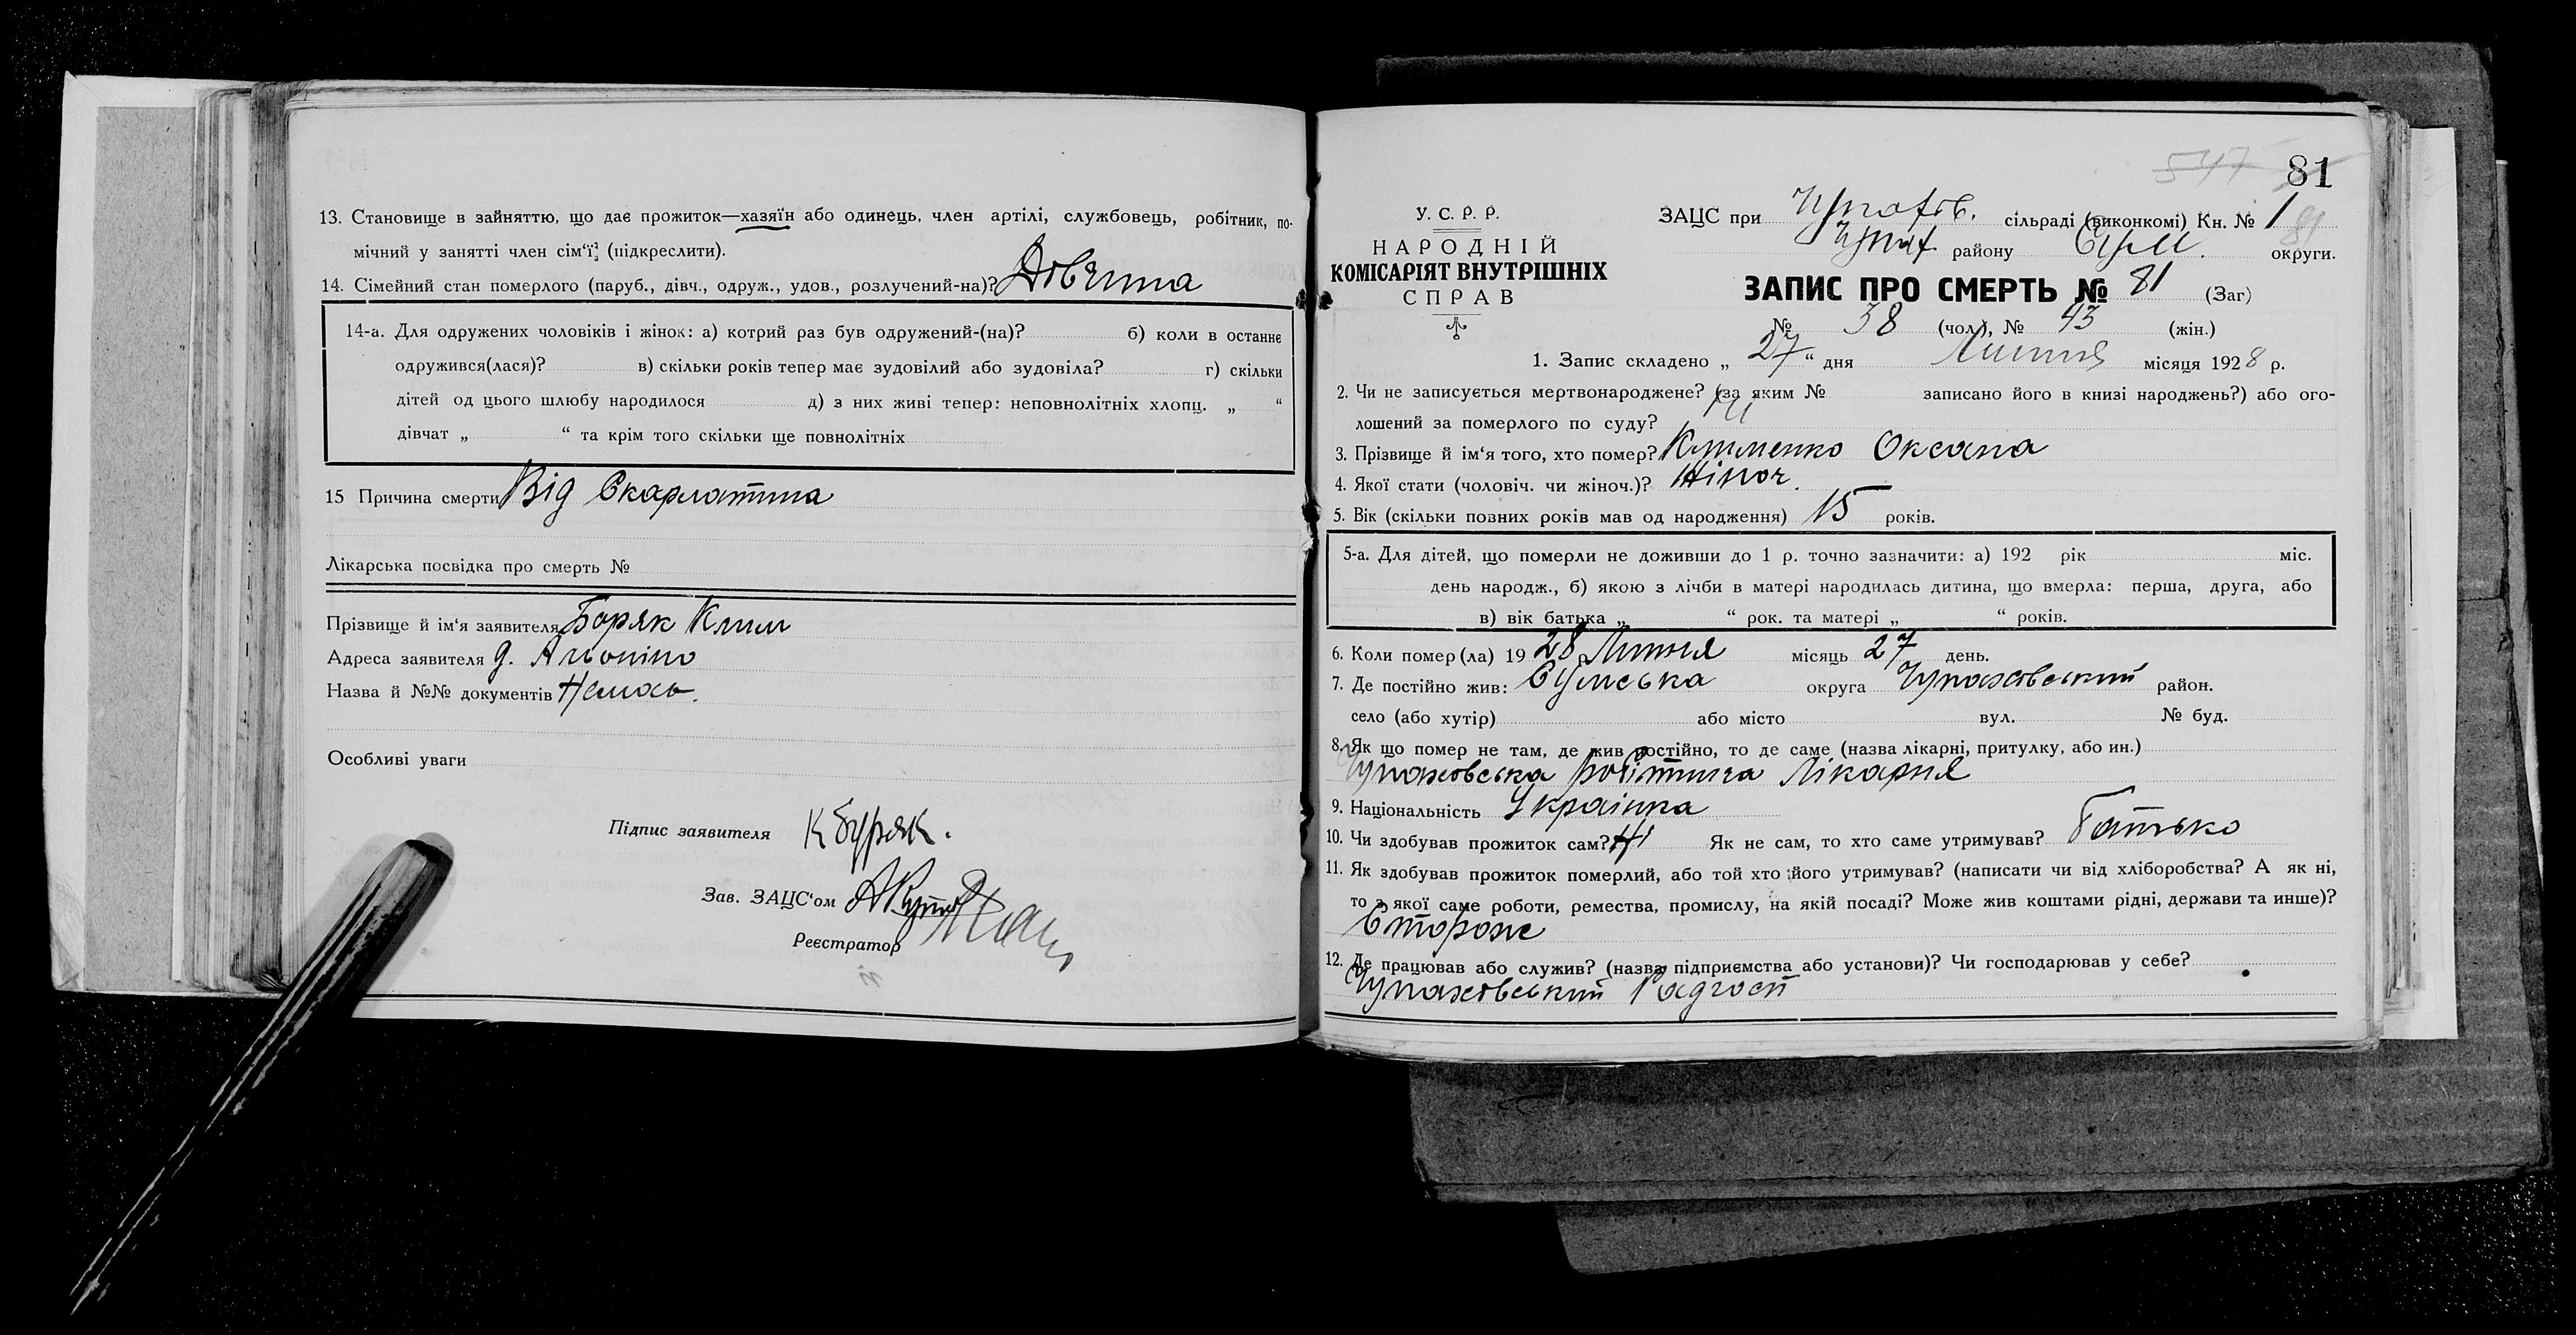 13. Становище в зайняттю, що дає прожиток—хазяїн або одинець, член артілі, службовець, робітник, по-
мічний у занятті член сім'ї (підкреслити).
14. Сімейний стан померлого (паруб., дівч., одруж., удов., розлучений-на)? Дівчина
14-а. Для одружених чоловіків і жінок: а) котрий раз був одружений-(на)? б) коли в останнє
одружився(лася)? в) скільки років тепер має зудовілий або зудовіла? г) скільки
дітей од цього шлюбу народилося д) з них живі тепер: неповнолітніх хлопц. „ “
дівчат „ “ та крім того скільки ще повнолітніх
15 Причина смерти Від Скарлатина
Лікарська посвідка про смерть №
Прізвище й ім'я заявителя Боряк Клим
Адреса заявителя
Назва й №№ документів Немась.
Особливі уваги
Підпис заявителя К Буряк.
Зав. ЗАЦС'ом
Реєстратор
547 81
У. С. Р. Р.
НАРОДНІЙ
КОМІСАРІЯТ ВНУТРІШНІХ
СПРАВ
ЗАЦС при Чупахів. сільраді (виконкомі) Кн. № 1
81
Чупах району Сум. округи.
ЗАПИС ПРО СМЕРТЬ № 81 (Заг)
№ 38 (чол.), № 43 (жін.)
1. Запис складено „ 27 “ дня Липня місяця 1928 р.
2. Чи не записується мертвонароджене? (за яким № записано його в книзі народжень?) або ого-
лошений за померлого по суду? Ні
3. Прізвище й ім'я того, хто помер? Клименко Оксана
4. Якої стати (чоловіч. чи жіноч.)? Жіноч.
5. Вік (скільки повних років мав од народження) 15 років.
5-а. Для дітей, що померли не доживши до 1 р. точно зазначити: а) 192 рік міс.
день народж., б) якою з лічби в матері народилась дитина, що вмерла: перша, друга, або
в) вік батька „ “ рок. та матері „ “ років.
6. Коли помер(ла) 1928 р. Липня місяць 27 день.
7. Де постійно жив: Сумська округа Чупаховський район.
село (або хутір) або місто вул. № буд.
8. Як що помер не там, де жив постійно, то де саме (назва лікарні, притулку, або ин.)
Чупаховська робітнича Лікарня
9. Національність Українка
10. Чи здобував прожиток сам? Ні Як не сам, то хто саме утримував? Батько
11. Як здобував прожиток померлий, або той хто його утримував? (написати чи від хліборобства? А як ні,
то з якої саме роботи, ремества, промислу, на якій посаді? Може жив коштами рідні, держави та инше)?
Сторож
12. Де працював або служив? (назва підприємства або установи)? Чи господарював у себе?
Чупаховський Радгосп